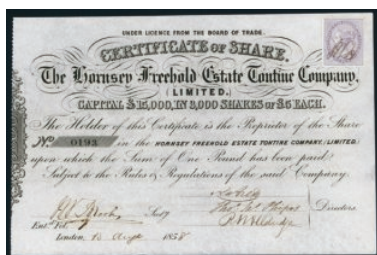 UNDER LICENCE FROM THE BOARD OF TRADE.
CERTIFICATE OF SHARE.
The Hornsey Freehold Estate Tontine Company,
(LIMITED.)
CAPITAL £15,000, IN 3,000 SHARES OF £5 EACH.
The Holder of this Certificate is the Proprietor of the Share
No. 0193 in the HORNSEY FREEHOLD ESTATE TONTINE COMPANY (LIMITED)
upon which the Sum of One Pound has been paid
Subject to the Rules & Regulations of the said Company.
Secy
Directors
Entd. Fol. 7
London, 13 Augt 1858